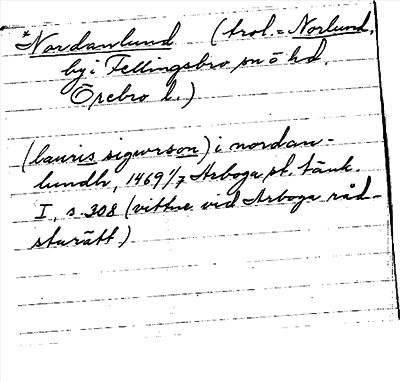 *Nordanlund (trol. = Norlund,
by i Fellingsbro sn o hd.
Örebro l.)
(lauris sigurson) i nordan-
lundh, 1469 1/7 Arboga st. tänk.
I, s. 308 (vittne vid Arboga råd-
sturätt.)